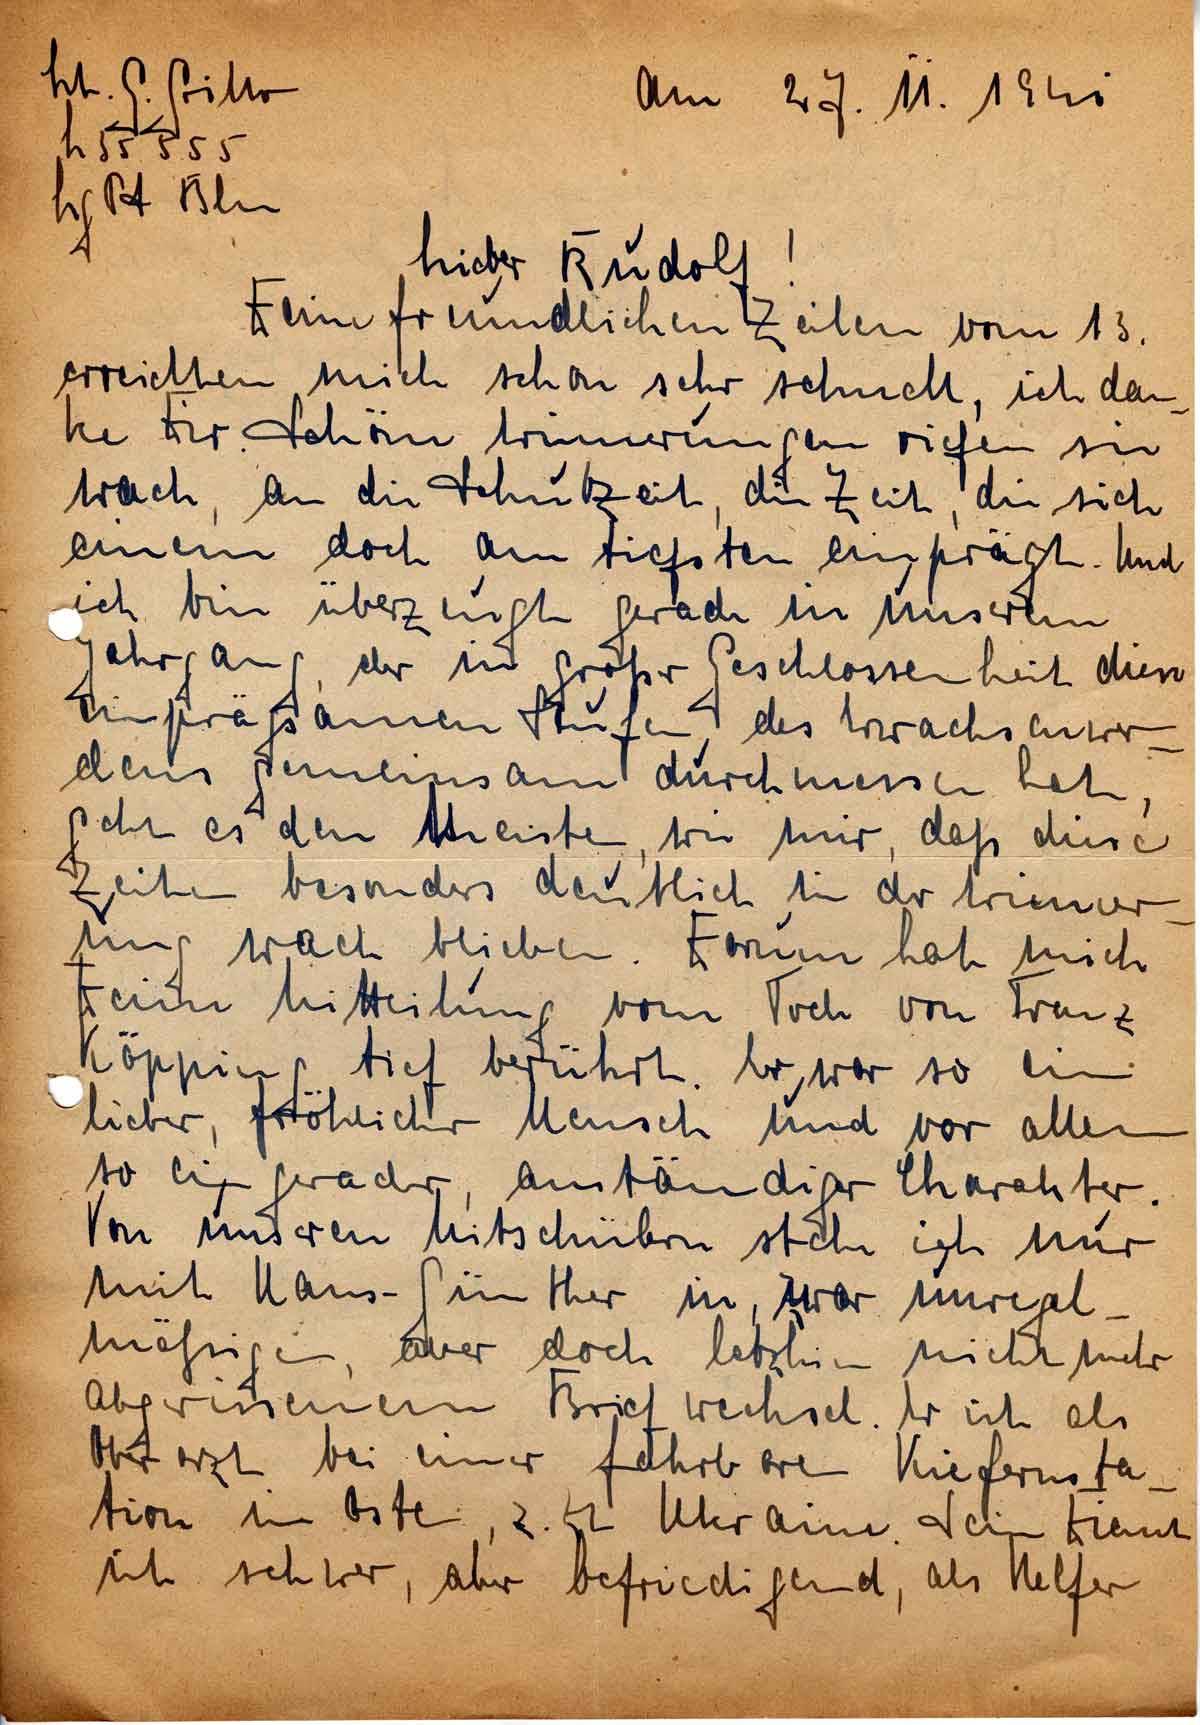 Lt. G. Grillo
L 55 555
Lg PA Bln
Am 27. 11. 1941
Lieber Rudolf!
Deine freundlichen Zeilen vom 13.
erreichten mich schon sehr schnell, ich dan-
ke Dir. Schöne Erinnerungen riefen sie
wach, an die Schulzeit, die Zeit, die sich
einem doch am tiefsten einprägt. Und
ich bin überzeugt gerade in unserem
Jahrgang, der in großer Geschlossenheit diese
einprägsamen Stufen des Erwachsenwer-
dens gemeinsam durchmessen hat,
geht es den Meisten, wie mir, daß diese
Zeiten besonders deutlich in der Erinner-
ung wach blieben. Darum hat mich
Deine Mitteilung vom Tode von Franz
Köpping tief berührt. Er war so ein
lieber, fröhlicher Mensch und vor allem
so ein gerader, anständiger Charakter.
Von unseren Mitschülern stehe ich nur
mit Hans-Günther in, zwar unregel-
mäßigen, aber doch letzhin nicht mehr
abgerissenem Briefwechsel. Er ist als
Oberarzt bei einer fahrbaren Kiefernsta-
tion im Osten, z. Zt Ukraine. Sein Dienst
ist schwer, aber befriedigend, als Helfer